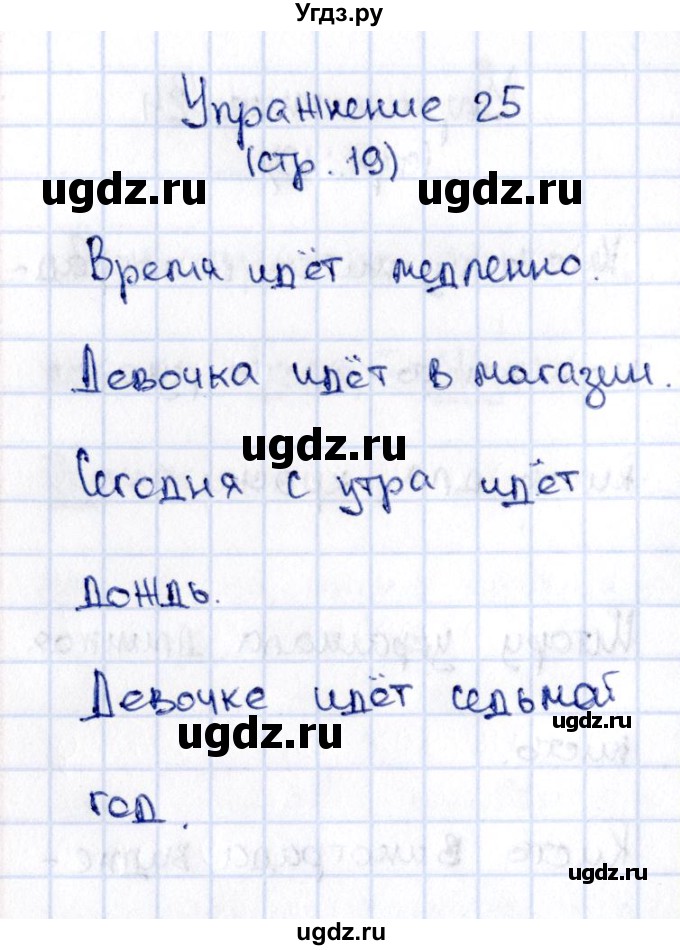 Угдз.ру
Упражнение 25
(стр. 19)
ugdz.ru ugdz.ru
Время идёт медленно.
Девочка идёт в магазин.
ugdz.ru
Сегодня с утра идёт
дождь.
Девочке идёт седьмой
ugdz.ru ugdz.ru
год.
ugdz.ru
ugdz.ru